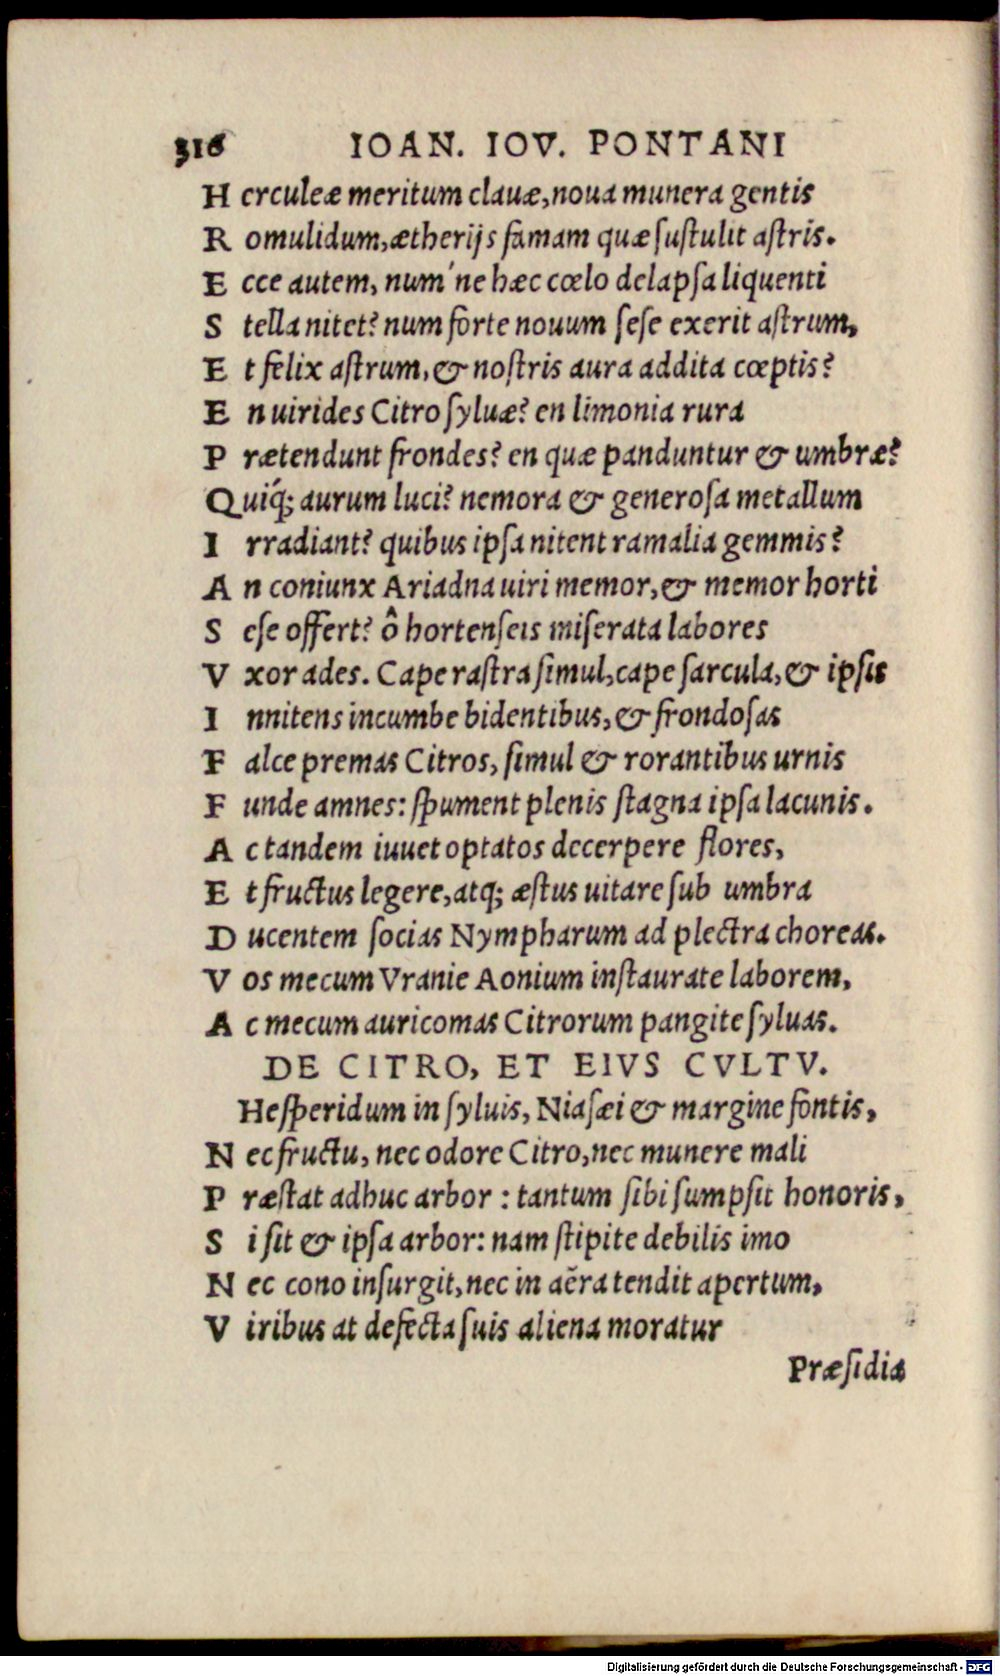 316 IOAN. IOV. PONTANI
H erculeæ meritum clauæ, noua munera gentis
R omulidum, ætherijs famam quæ ſuſtulit aſtris.
E cce autem, num'ne hæc cœlo delapſa liquenti
S tella nitet? num forte nouum ſeſe exerit aſtrum,
E t felix aſtrum, & noſtris aura addita cœptis?
E n uirides Citro ſyluæ? en limonia rura
P rætendunt frondes? en quæ panduntur & umbræ?
Q uiq́; aurum luci? nemora & generoſa metallum
I rradiant? quibus ipſa nitent ramalia gemmis?
A n coniunx Ariadna uiri memor, & memor horti
S eſe offert? ô hortenſeis miſerata labores
V xor ades. Cape raſtra ſimul, cape ſarcula, & ipſis
I nnitens incumbe bidentibus, & frondoſas
F alce premas Citros, ſimul & rorantibus urnis
F unde amnes: ſpument plenis ſtagna ipſa lacunis.
A c tandem iuuet optatos decerpere flores,
E t fructus legere, atq; æſtus uitare ſub umbra
D ucentem ſocias Nympharum ad plectra choreas.
V os mecum Vranie Aonium inſtaurate laborem,
A c mecum auricomas Citrorum pangite ſyluas.
DE CITRO, ET EIVS CVLTV.
Heſperidum in ſyluis, Niaſæi & margine fontis,
N ec fructu, nec odore Citro, nec munere mali
P ræſtat adhuc arbor : tantum ſibi ſumpſit honoris,
S i ſit & ipſa arbor: nam ſtipite debilis imo
N ec cono inſurgit, nec in aëra tendit apertum,
V iribus at defecta ſuis aliena moratur
Præſidia
Digitalisierung gefördert durch die Deutsche Forschungsgemeinschaft - DFG